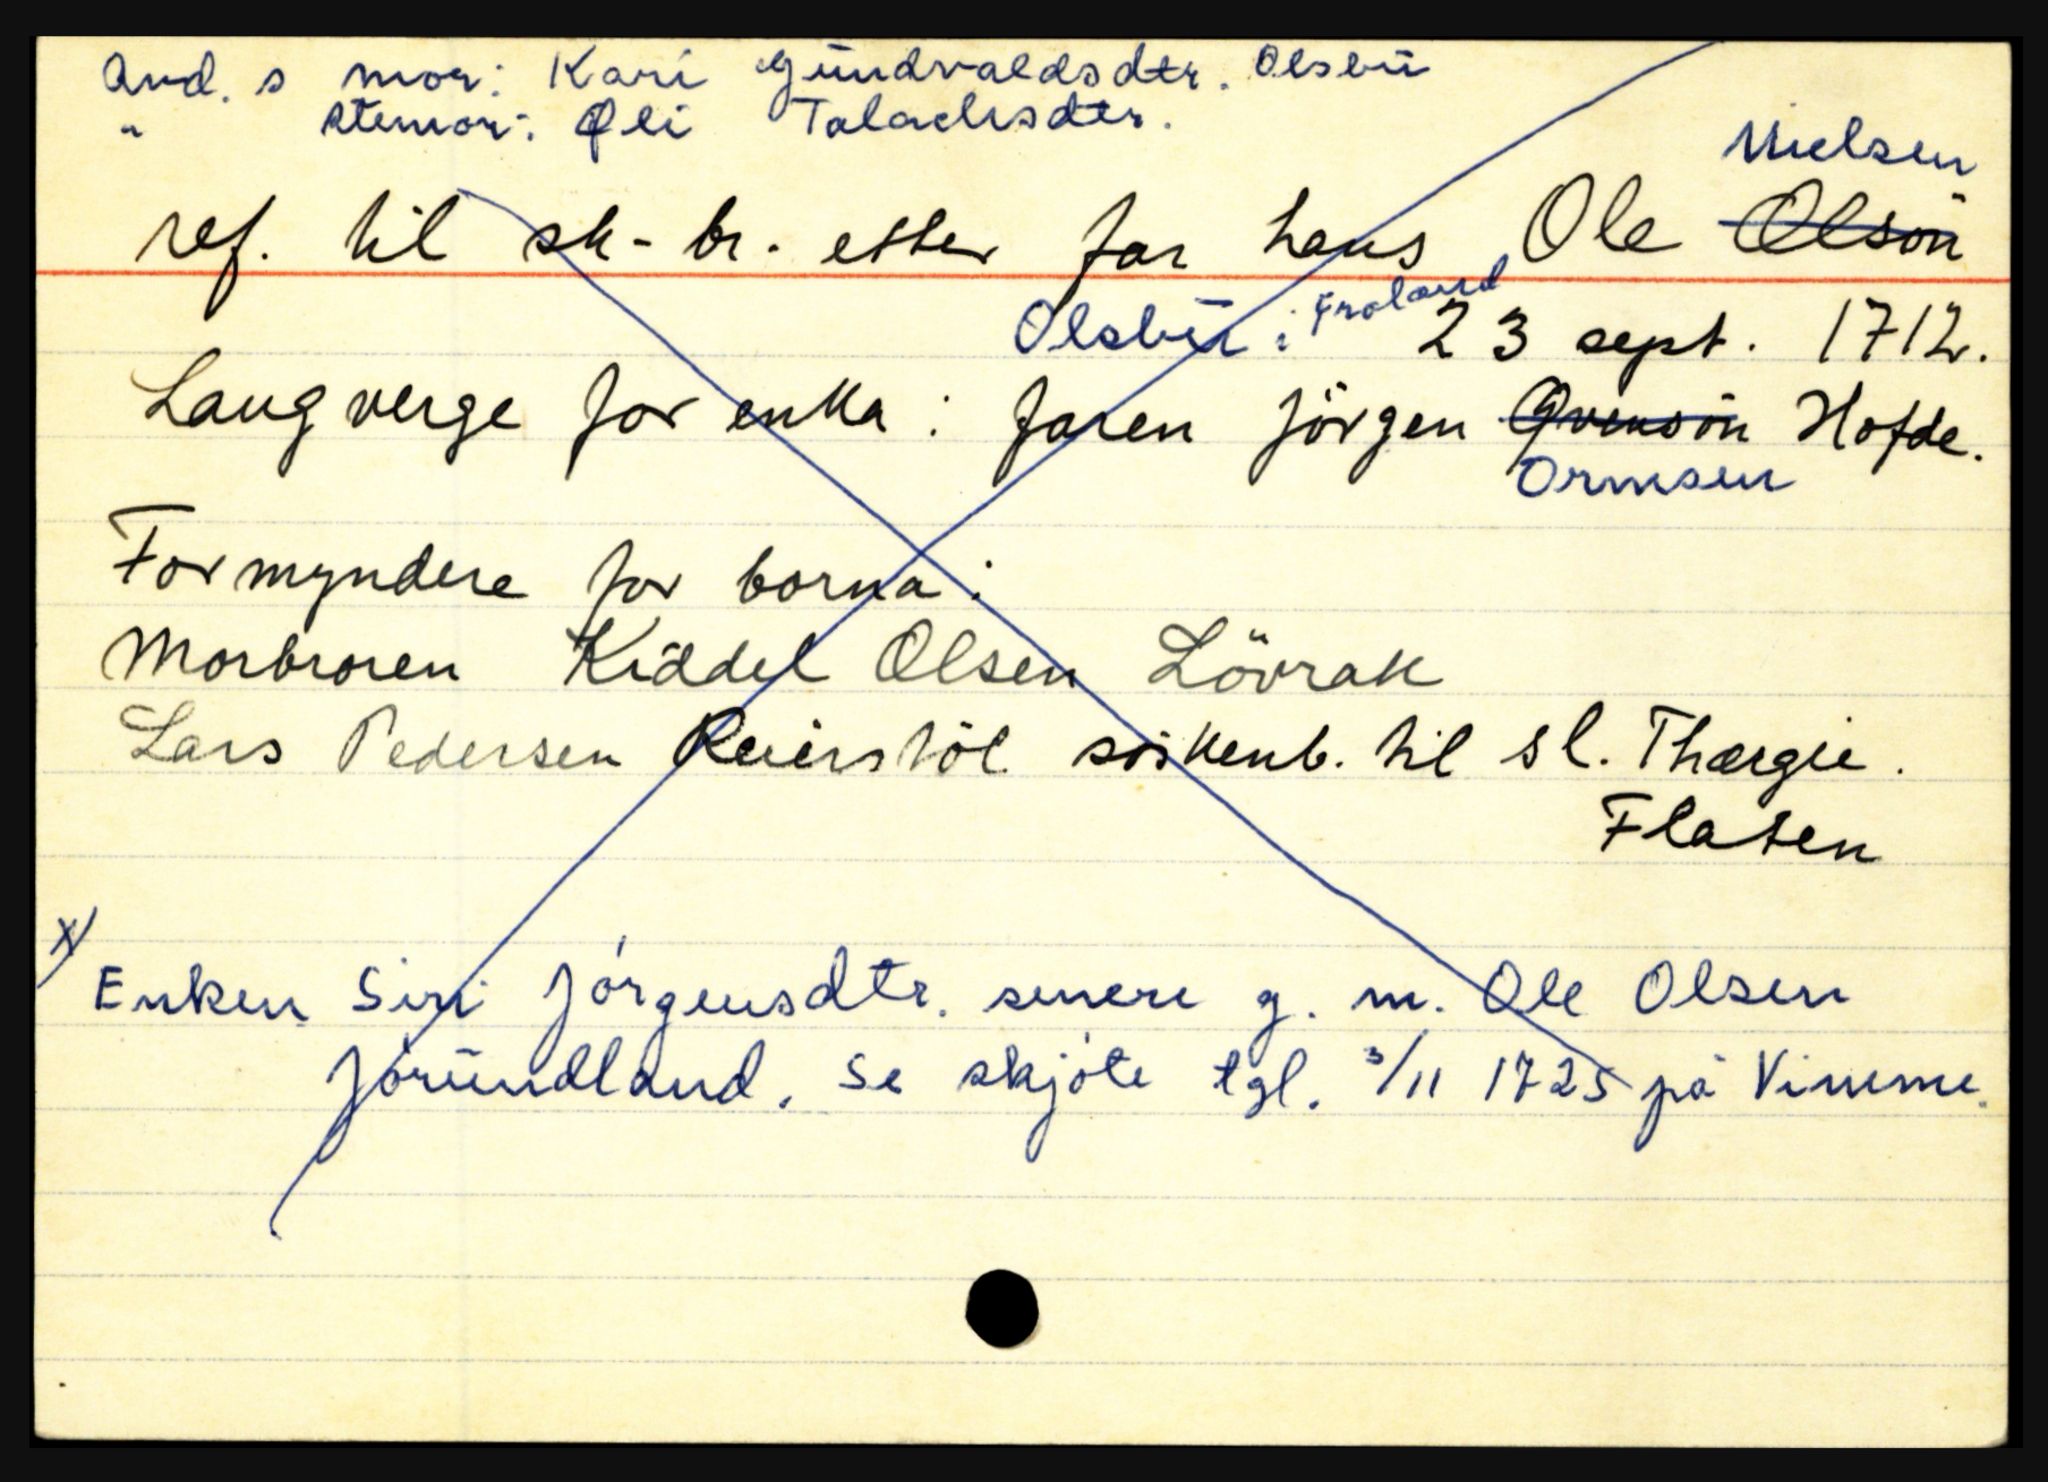 And. s mor: Kari Gŭndvaldsdtr. Olsbŭ
" stemor: Øli Taladsdtr.
Nielsen
ref. til sk-br. etter far hans Ole Olsön
Olsbŭ i Froland 23 sept. 1712.
Laugverge for enka: faren Jörgen Hofde.
Ormsen
Formyndere for borna:
Morbroren Kiddel Olsen Lövrak
Lars Pedersen Reierstöl söskenb. til sl. Thærgie.
Flaten
x) Enken Siri Jörgensdtr. senere g. m. Ole Olsen
Jörŭndland. Se skjöte tgl. 3/11 1725 på Vimme.